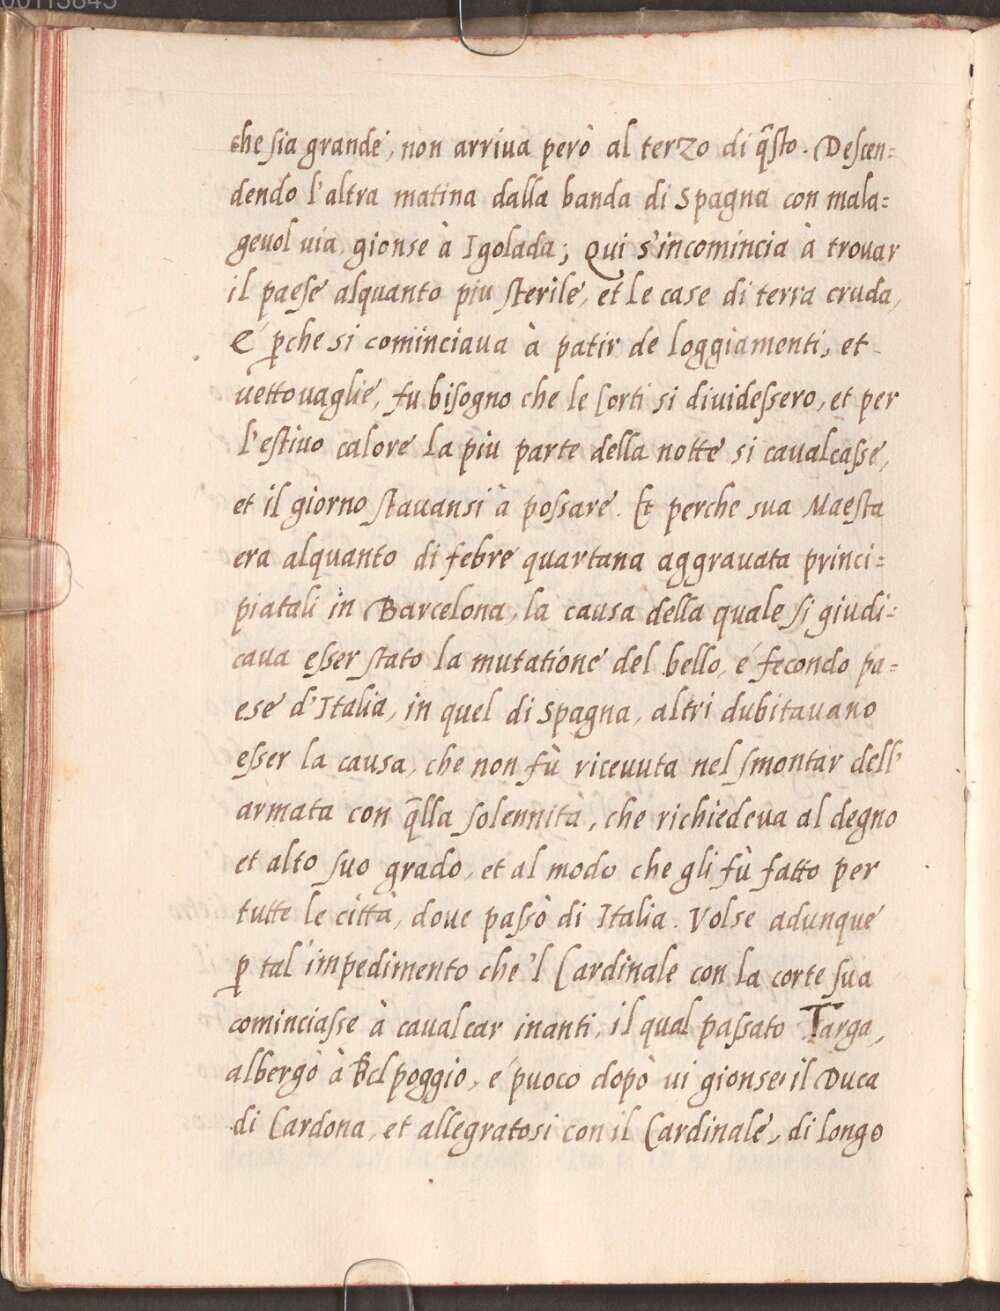 00113845
che sia grande, non arriua però al terzo di q̃sto. Descen=
dendo l'altra matina dalla banda di Spagna con mala=
geuol uia, gionse à Igolada; Qui s'incomincia à trouar
il paese alquanto piu sterile, et le case di terra cruda,
E ꝑche si cominciaua à patir de loggiamenti, et
uettouaglie, fu bisogno che le sorti si diuidessero, et per
l'estiuo calore la più parte della notte si caualcasse,
et il giorno stauansi à possare. Et perche sua Maesta
era alquanto di febre quartana aggrauata princi=
piatali in Barcelona, la causa della quale si giudi=
caua esser stato la mutatione del bello, é fecondo pa=
ese d'Italia, in quel di Spagna, altri dubitauano
esser la causa, che non fù riceuuta nel smontar dell'
armata con q̃lla solennità, che richiedeua al degno
et alto suo grado, et al modo che gli fù fatto per
tutte le città, doue passò di Italia. Volse adunque
ꝑ tal'impedimento che'l Cardinale con la corte sua
cominciasse à caualcar inanti, il qual passato Targa,
albergò à Belpoggio, e puoco dopò ui gionse il Duca
di Cardona, et allegratosi con il Cardinale, di longo